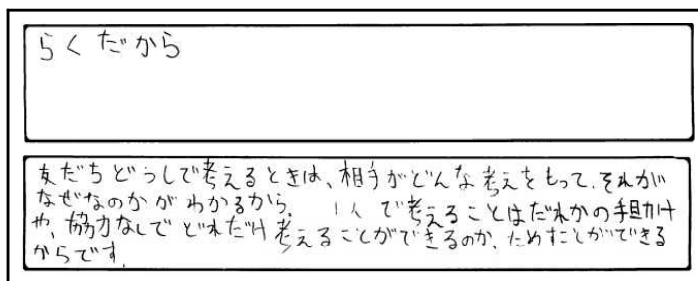 らくだから
友だちどうしで考えるときは、相手がどんな考えをもって、それが
なぜなのかがわかるから。 1人で考えることはだれかの手助け
や、協力なしでどれだけ考えることができるのか、ためすことができる
からです。